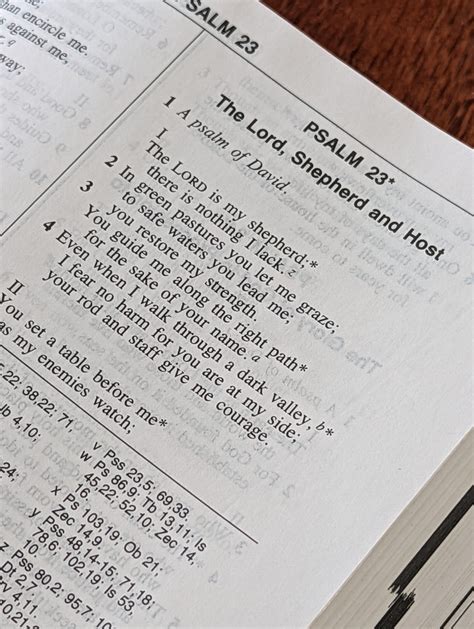 SALM 23
han encircle me.
s against me,
way;
PSALM 23*
The Lord, Shepherd and Host
1 A psalm of David.
I
The LORD is my shepherd;*
there is nothing I lack. z
2 In green pastures you let me graze;
to safe waters you lead me;
3 you restore my strength.
You guide me along the right path*
for the sake of your name. a
4 Even when I walk through a dark valley, b*
I fear no harm for you are at my side;
your rod and staff give me courage.
II
You set a table before me*
as my enemies watch;
22; 38,22; 71,
Jb 4,10;
24;
v Pss 23,5; 69,33.
w Ps 86,9; Tb 13,11; Is
45,22; 52,10; Zec 14,
16.
x Ps 103,19; Ob 21;
Zec 14,9.
y Pss 48,14-15; 71,18;
78,6; 102,19; Is 53,
10.
z Pss 80,2; 95,7; 10
Dt 2,
rv 4,11.
10,21-